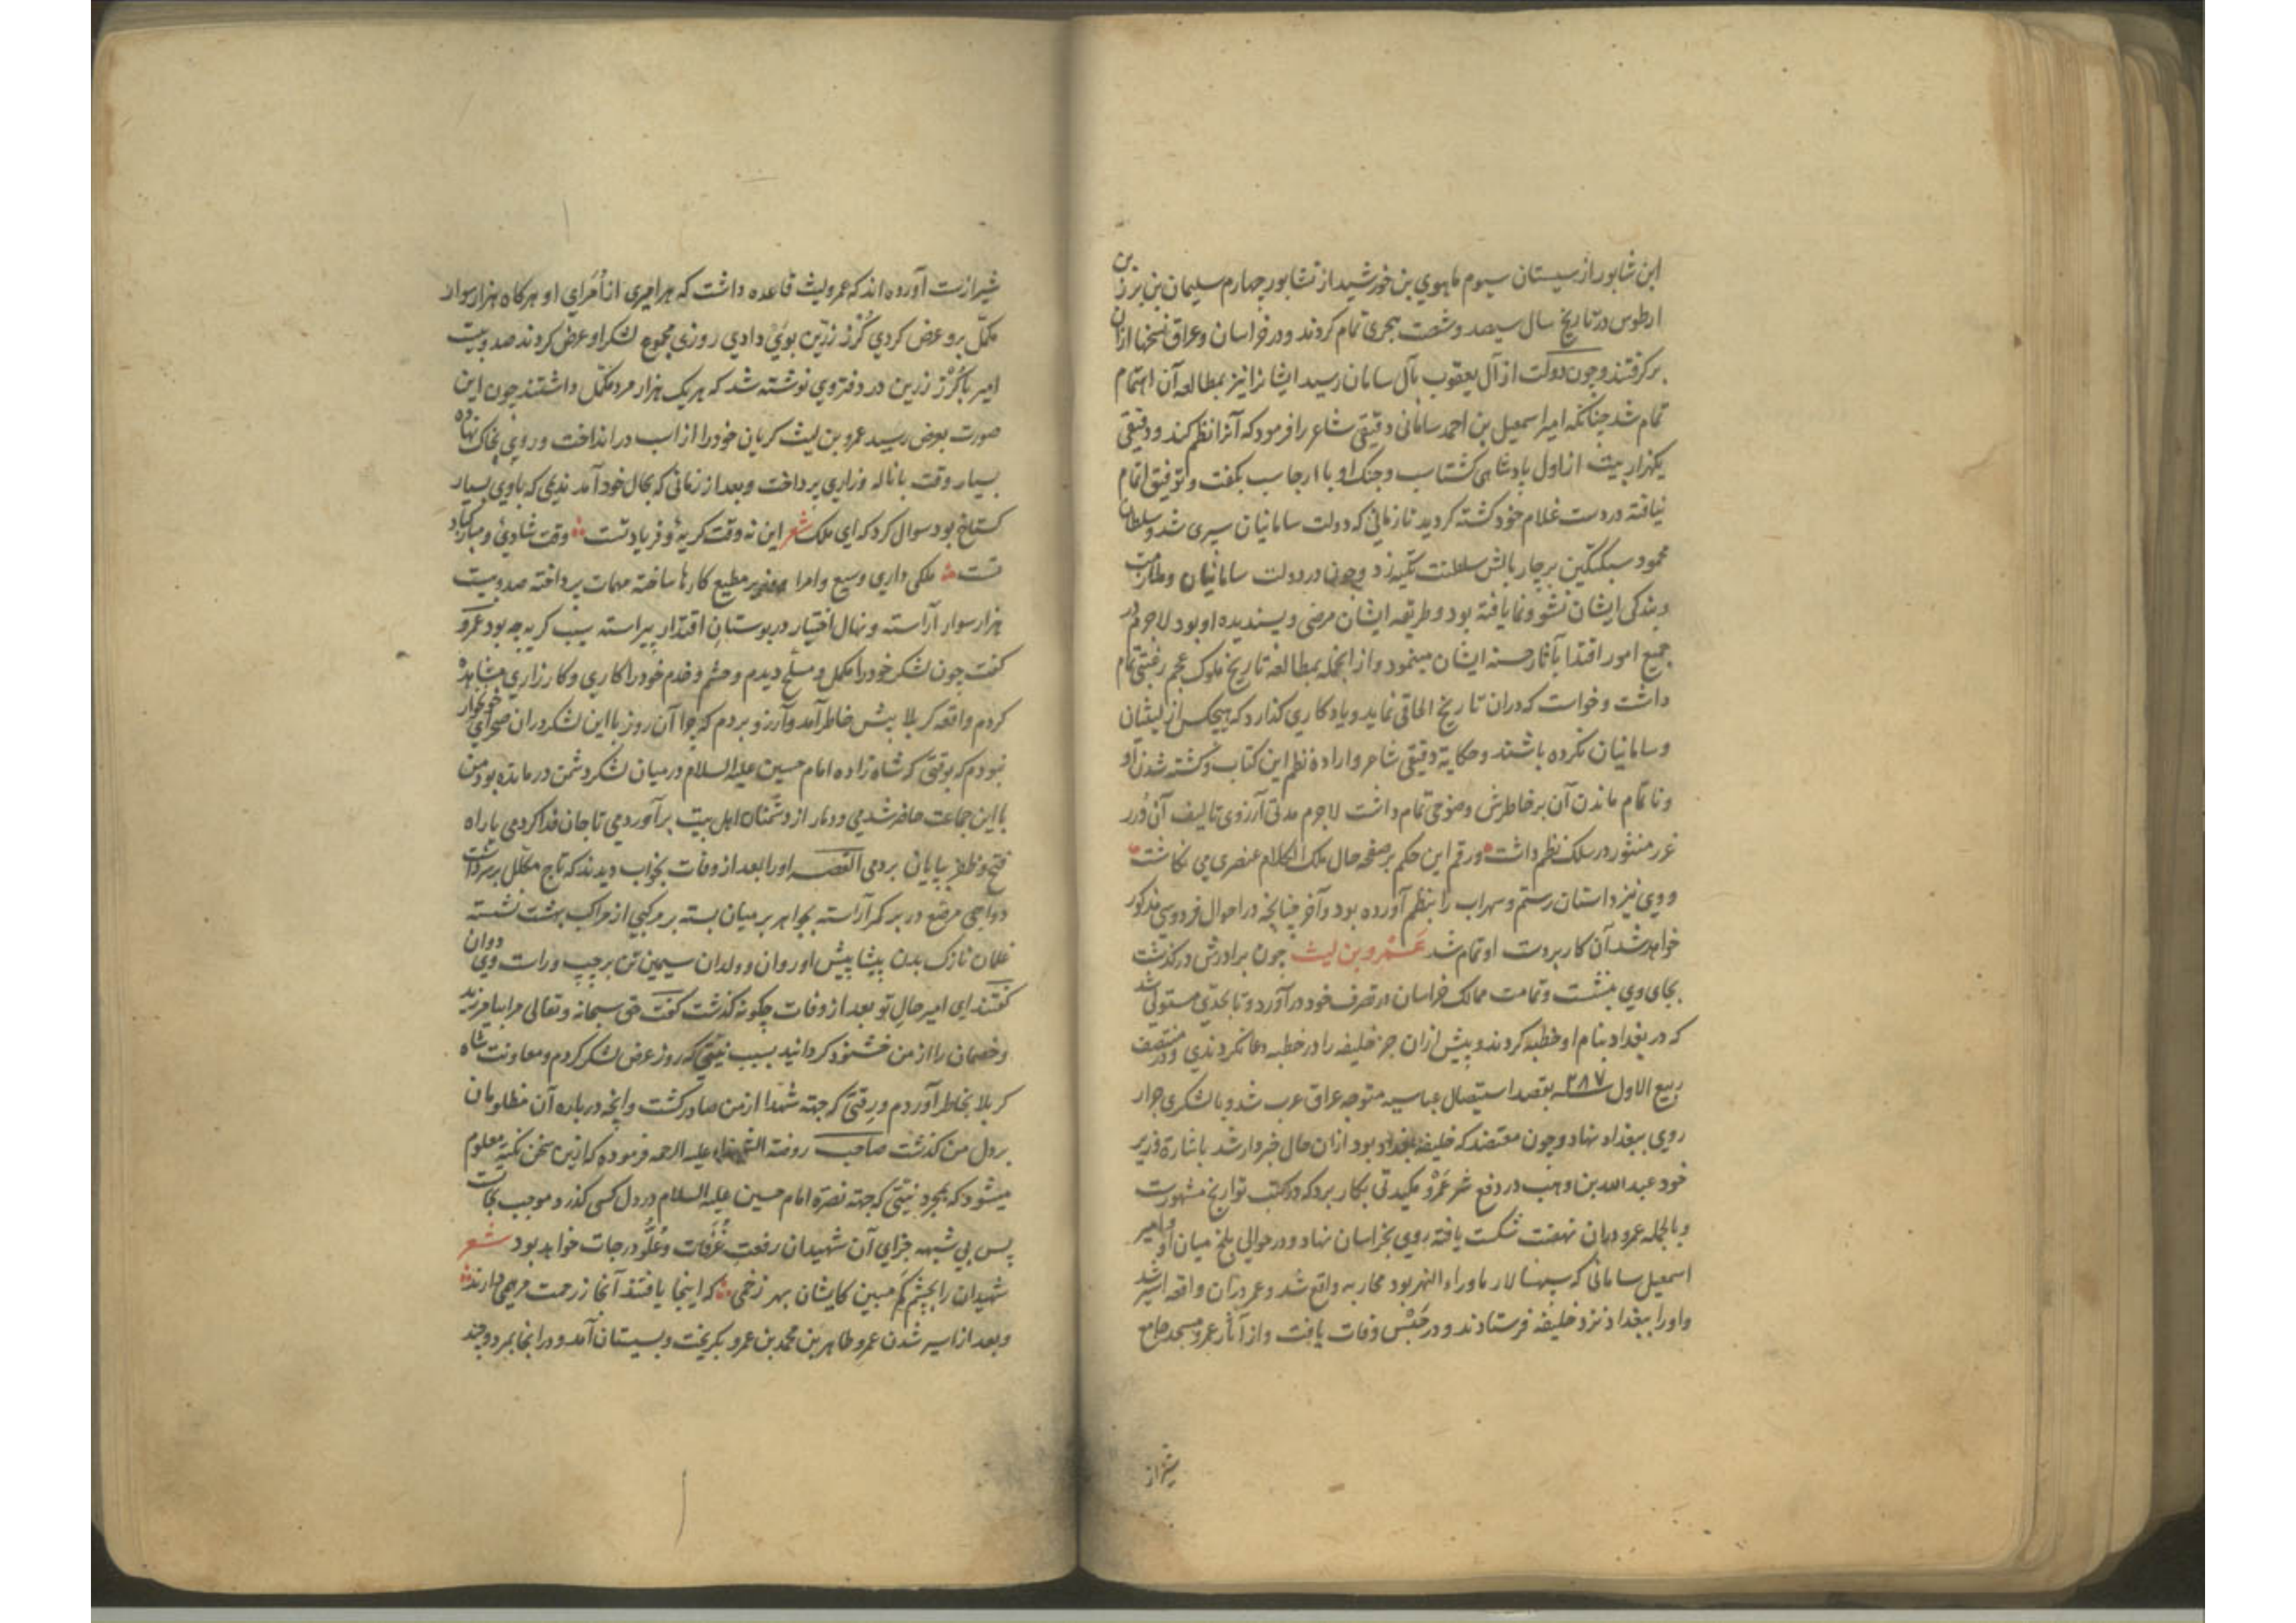 ابن شاپور از سیستان سیوم ماهوی بن خورشید از نشابور چهارم سلیمان بن برزین
از طوس در تاریخ سال سیصد و شصت هجری تمام کردند و در خراسان و عراق نسخها ازان
برگرفتند و چون دولت از آل یعقوب بآل سامان رسید ایشانرا نیز بمطالعه آن اهتمام
تمام شد چنانکه امیر اسمعیل بن احمد سامانی دقیقی شاعر را فرمود که آنرا نظم کند و دقیقی
یکهزار بیت از اول پادشاهی گشتاسب و جنک او با ارجاسب بکفت و توفیق اتمام
نیافته در دست غلام خود کشته کردید تا زمانی که دولت سامانیان سپری شد و سلطان
محمود سبکتکین بر چار بالش سلطنت تکیه زد و چون در دولت سامانیان و ملازمت
و بندکی ایشان نشو و نما یافته بود و طریقه ایشان مرضی و پسندیده او بود لاجرم در
جمیع امور اقتدا بآثار حسنه ایشان مینمود و از انجمله بمطالعه تاریخ ملوک عجم رغبتی تمام
داشت و خواست که دران تاریخ الحاقی نماید و یادکاری کذارد که هیچکس از لیثیان
و سامانیان نکرده باشند و حکایة دقیقی شاعر و اراده نظم این کتاب و کشته شدن او
و ناتمام ماندن آن بر خاطرش وضوحی تمام داشت لاجرم مدتی آرزوی تالیف آن درر
غرر منثور در سلک نظم داشت و رقم این حکم بر صفحه حال ملک الکلام عنصری می نکاشت
و وی نیز داستان رستم و سهراب را بنظم آورده بود و آخر چنانچه در احوال فردوسی مذکور
خواهد شد آن کار بر دست او تمام شد عَمرو بن لیث چون برادرش درکذشت
بجای وی بنشست و تمامت ممالک خراسان در تصرف خود درآورد و تا بحدی مستولی شد
که در بغداد بنام او خطبه کردند و پیش ازان جز خلیفه را در خطبه دعا نکردندی و در منتصف
ربیع الاول سنه ۲۸۷ بقصد استیصال عباسیه متوجه عراق عرب شد و با لشکری جرار
روی ببغداد نهاد و چون معتضد که خلیفه بغداد بود ازان حال خبردار شد باشاره وزیر
خود عبد الله بن وهب در دفع شر عَمْرو مکیدتی بکار برد که در کتب تواریخ مشهورست
و بالجمله عمرو دران نهضت شکست یافته روی بخراسان نهاد و در حوالی بلخ میان او و امیر
اسمعیل سامانی که سپهسالار ماوراء النهر بود محاربه واقع شد و عمرو دران واقعه اسیر شد
و او را ببغداد نزد خلیفه فرستادند و در حَبْس وفات یافت و از آثار عمرو مسجد جامع
شیراز
شیرازست آورده اند که عمرو لیث قاعده داشت که هر امیری از اُمَرای او هرکاه هزار سوار
مکمّل برو عرض کردی کُرز زرّین بوی دادی روزی مجموع لشکر او عرض کردند صد و بیست
امیر با کُرْز زرین در دفتر وی نوشته شد که هر یک هزار مرد مکمّل داشتند چون این
صورت بعرض رسید عمرو بن لیث کریان خود را از اسب در انداخت و روی بخاک نهاده
بسیار وقت با ناله و زاری پرداخت و بعد از زمانی که بحال خود آمد ندیمی که با وی بسیار
کستاخ بود سوال کرد که ای ملک شعر این نه وقت کریهٔ و فریاد تست وقت شادیٔ و مبارکباد
تست ملکی داری وسیع و امرا مطیع کارها ساخته مهمات پرداخته صد و بیست
هزار سوار آراسته و نهال اختیار در بوستان اقتدار پیراسته سبب کریه چه بود عمرو
کفت چون لشکر خود را مکمل و مسلّح دیدم و حشم و خدم خود را کاری و کارزاری مشاهده
کردم واقعه کربلا پیش خاطر آمد و آرزو بردم که چرا آن روز با این لشکر دران صحرای خونخوار
نبودم که بوقتی که شاه زاده امام حسین علیه السلام در میان لشکر دشمن درمانده بود من
با این جماعت حاضر شدمی و دمار از دشمنان اهل بیت برآوردمی تا جان فدا کردمی یا راه
فتح و ظفر بپایان بردمی القصه او را بعد از وفات بخواب دیدند که تاج مکلّل بر سر داشت
دواجی مرصّع در بر کمر آراسته بجواهر بر میان بسته بر مرکبی از مراکب بهشت نشسته
غلمان نازک بدن پیشاپیش او روان و ولدان سیمین تن بر چپ و راست وی دوان
کفتند ای امیر حال تو بعد از وفات چکونه کذشت کفت حق سبحانه و تعالی مرا بیامرزید
و خصمان را از من خشنود کردانید بسبب نیّتی که روز عرض لشکر کردم و معاونت شاه
کربلا بخاطر آوردم و رقّتی که جهته شهدا از من صادر کشت و آنچه درباره آن مظلومان
بر دل من کذشت صاحب روضة الشهداء علیه الرحمه فرموده که ازین سخن نکته معلوم
میشود که بمجرد نیّتی که جهته نصرة امام حسین علیه السلام در دل کسی کذرد موجب نجات است
پس بی شبهه جزای آن شهیدان رفعت غُرَفات و عُلُوّ درجات خواهد بود شعر
شهیدان را بچشم کم مبین کایشان بهر زخمی که اینجا یافتند آنجا ز رحمت مرهمی دارند
و بعد از اسیر شدن عمرو طاهر بن محمد بن عمرو بکریخت و بسیستان آمد و در انجا بمرد و چند